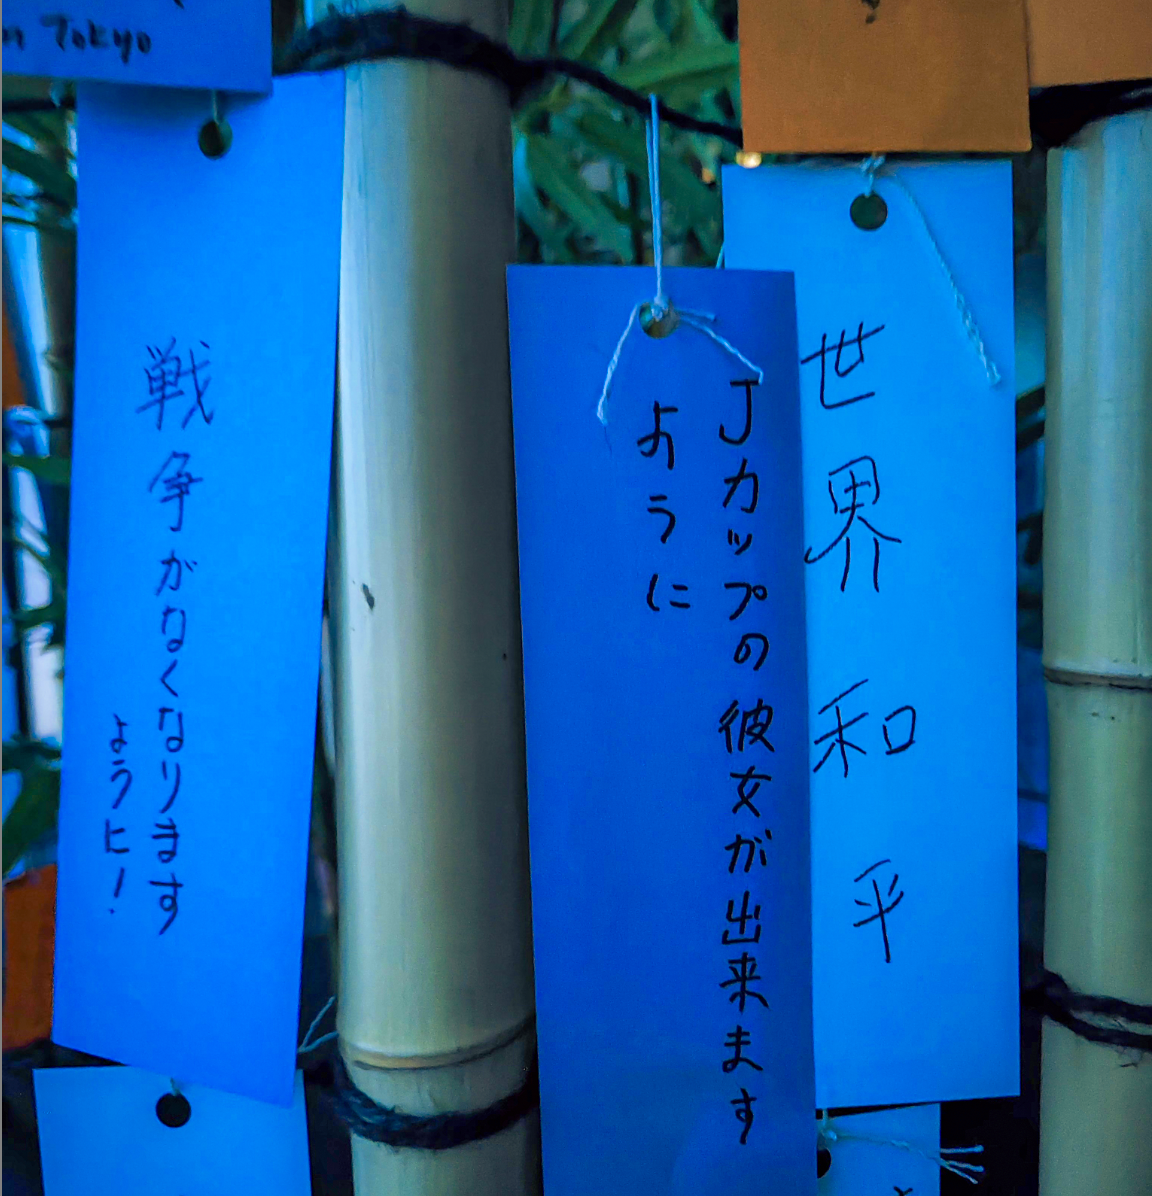 Tokyo
戦争がなくなります
ように!
Jカップの彼女が出来ます
ように
世界和平